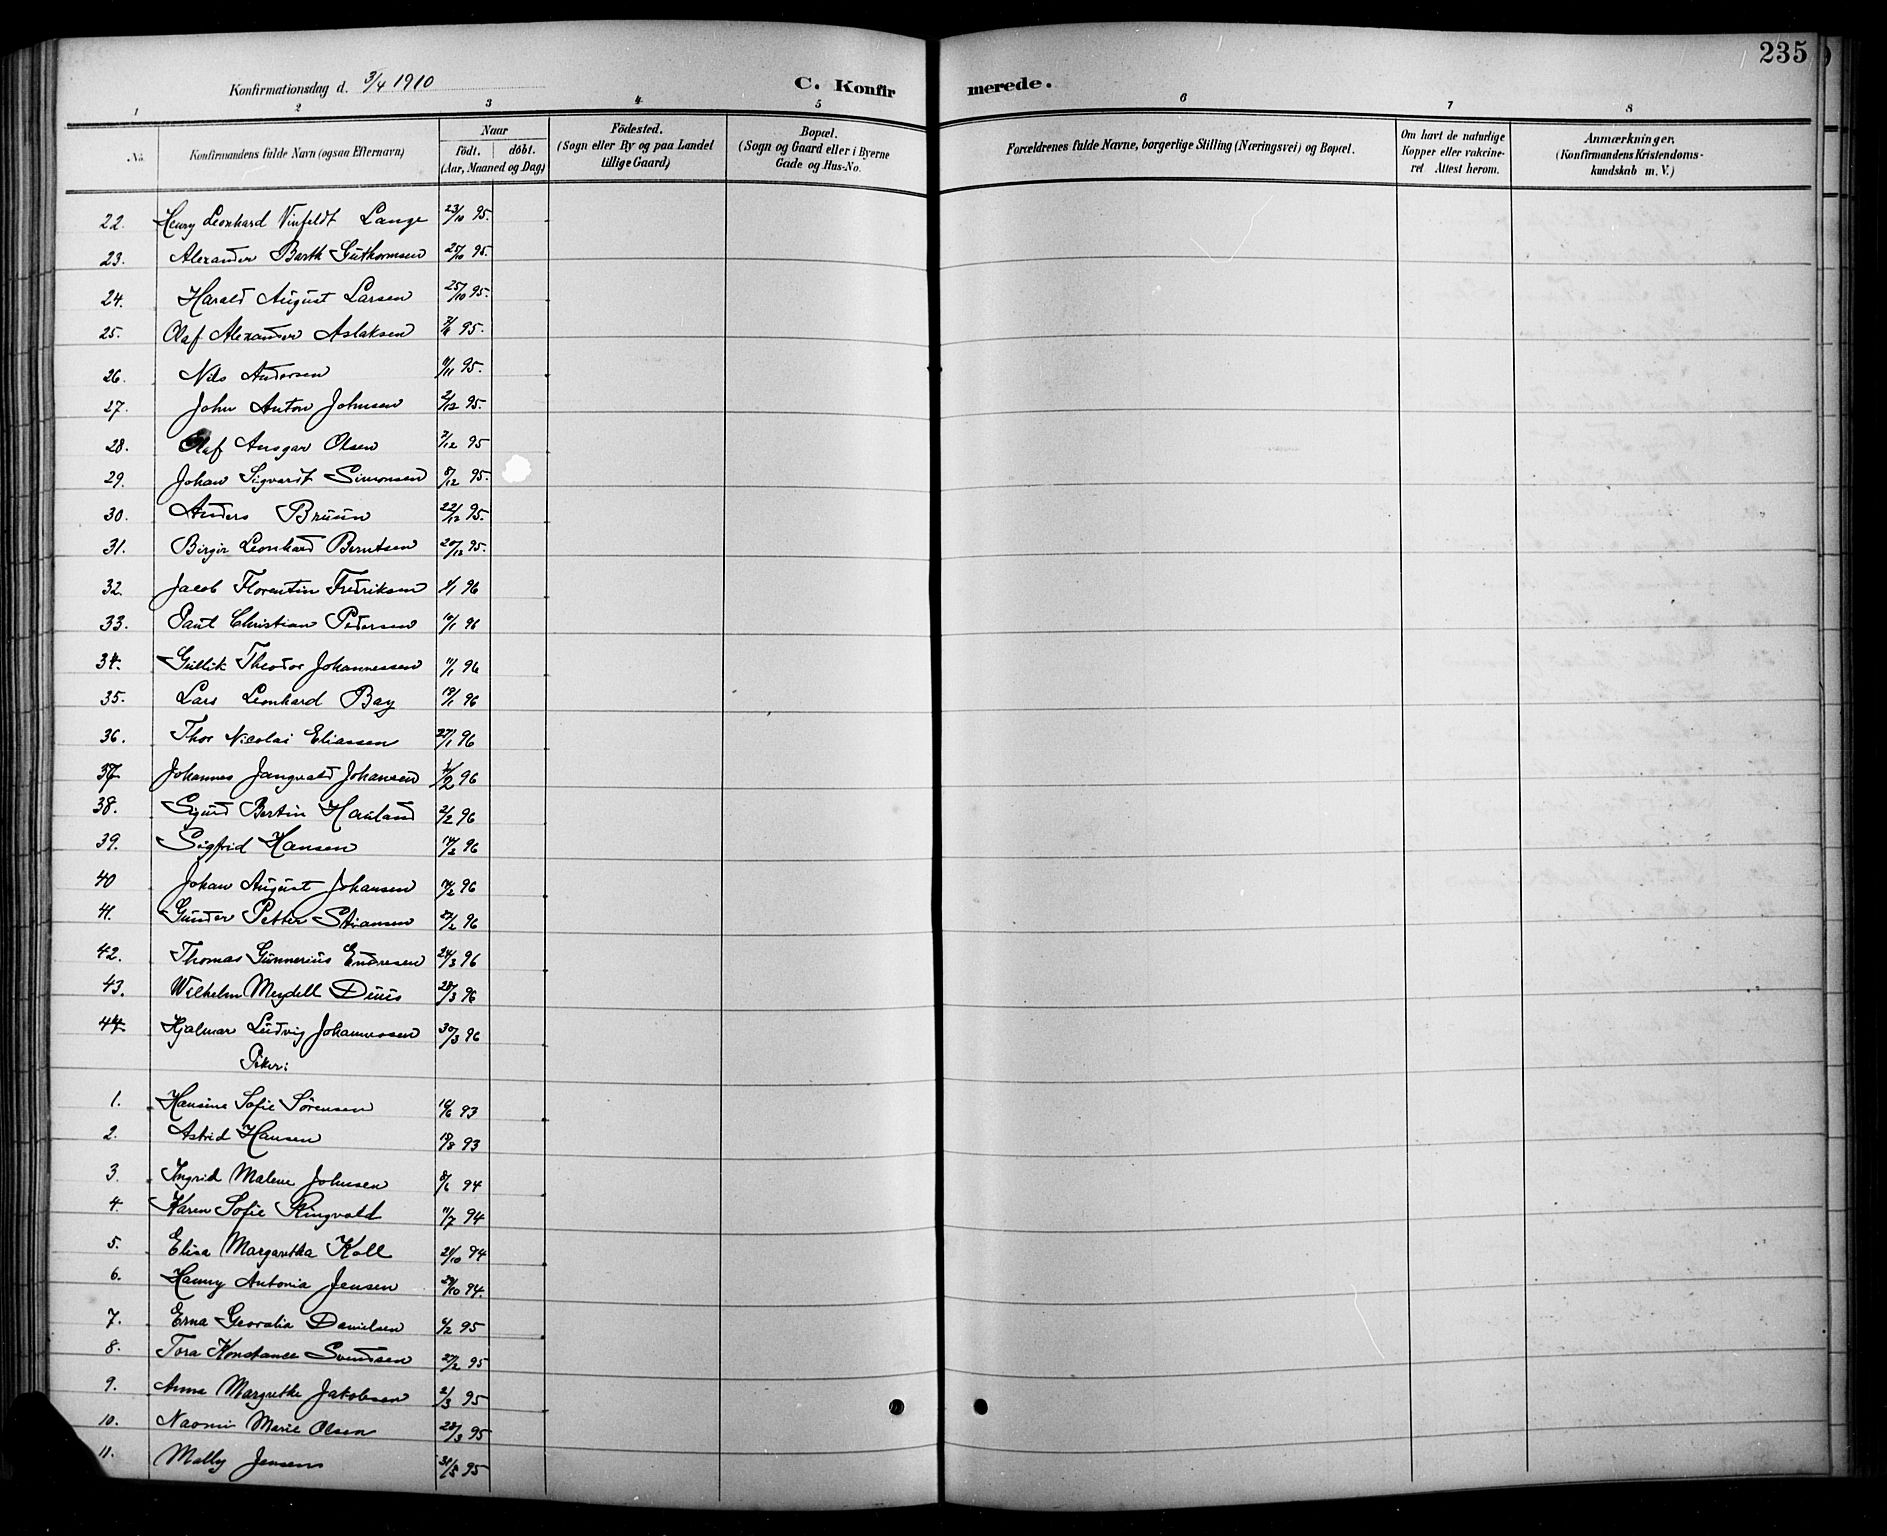 235
Konfirmationsdag d. 3/4 1910
C. Konfirmerede.
1 2 3 4 5 6 7 8
No. Konfirmandens fulde Navn (ogsaa Efternavn) Naar födt. döbt. (Aar, Maaned og Dag) Födested. (Sogn eller By og paa Landet tillige Gaard) Bopæl. (Sogn og Gaard eller i Byerne Gade og Hus-No. Forældrenes fulde Navne, borgerlige Stilling (Næringsvei) og Bopæl. Om havt de naturlige Kopper eller vakcineret Attest herom. Anmærkninger. (Konfirmandens Kristendomskundskab m. V.)
22. Henry Leonhard Vinfeldt Lange 23/10 95.
23. Alexander Barth Guthormsen 25/10 95.
24. Harald August Larsen 25/10 95.
25. Olaf Alexander Aslaksen 95.
26. Nils Andersen 11/11 95.
27. John Anton Johnsen 2/12 95.
28. Olaf Ansgar Olsen 7/12 95
29. Johan Sigvardt Simonsen 8/12 95.
30. Anders Bruun 22/12 95.
31. Birgir Leonhard Berntsen 20/12 95.
32. Jacob Florentin Fredriksen 96
33. Paul Christian Pedersen 10/1 96
34. Gullik Theodor Johannessen 11/1 96
35. Lars Leonhard Bay 19/1 96
36. Thor Nicolai Eliassen 27/1 96
37 Johannes Jangvald Johansen 1/2 96
38. Sigurd Bertin Hauland 2/2 96
39. Sigfrid Hansen 14/2 96
40 Johan August Johansen 96
41. Gunder Petter Stiansen 96
42. Thomas Gunnerius Endresen 24/3 96
43. Wilhelm Meydell Duus 28/3 96
44. Hjalmar Ludvig Johannessen 30/3 96
Piker:
1. Hansine Sofie Sörensen 16/6 93
2. Astrid Hansen 19/8 93
3. Ingrid Malene Johnsen 8/6 94
4. Karen Sofie Ringvold 11/7 94
5. Elisa Margaretha Koll 21/10 94
6. Hanny Antonia Jensen 94.
7. Erna Georalia Danielsen 6/2 95
8. Tora Konstance Svendsen 27/2 95
9. Anna Margrethe Jakobsen 2/3 95
10. Naomi Marie Olsen 28/3 95
11. Mally Jensen 31/5 95